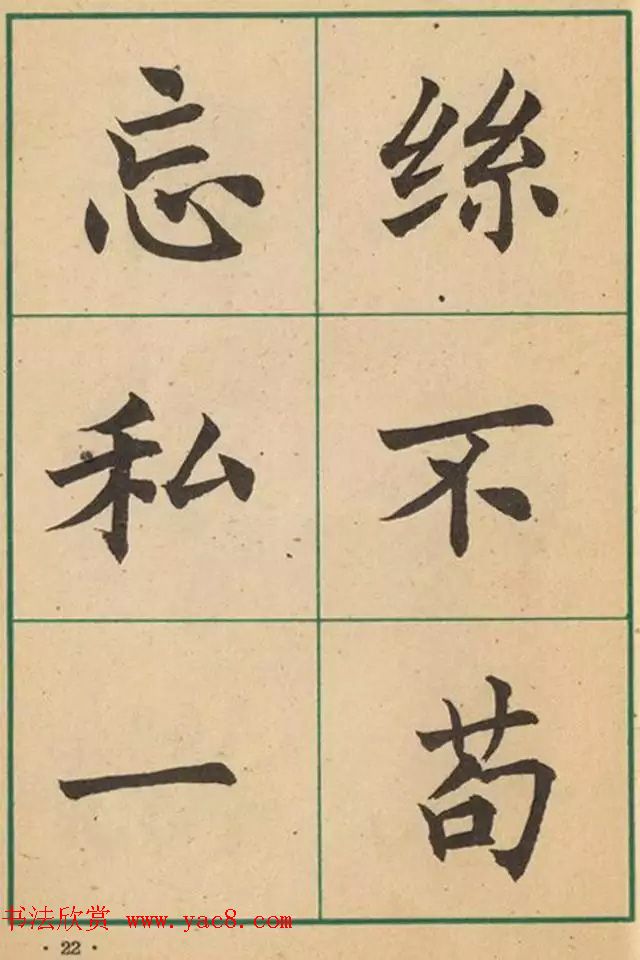 絲不苟
忘私一
书法欣赏 www.yac8.com
·22·